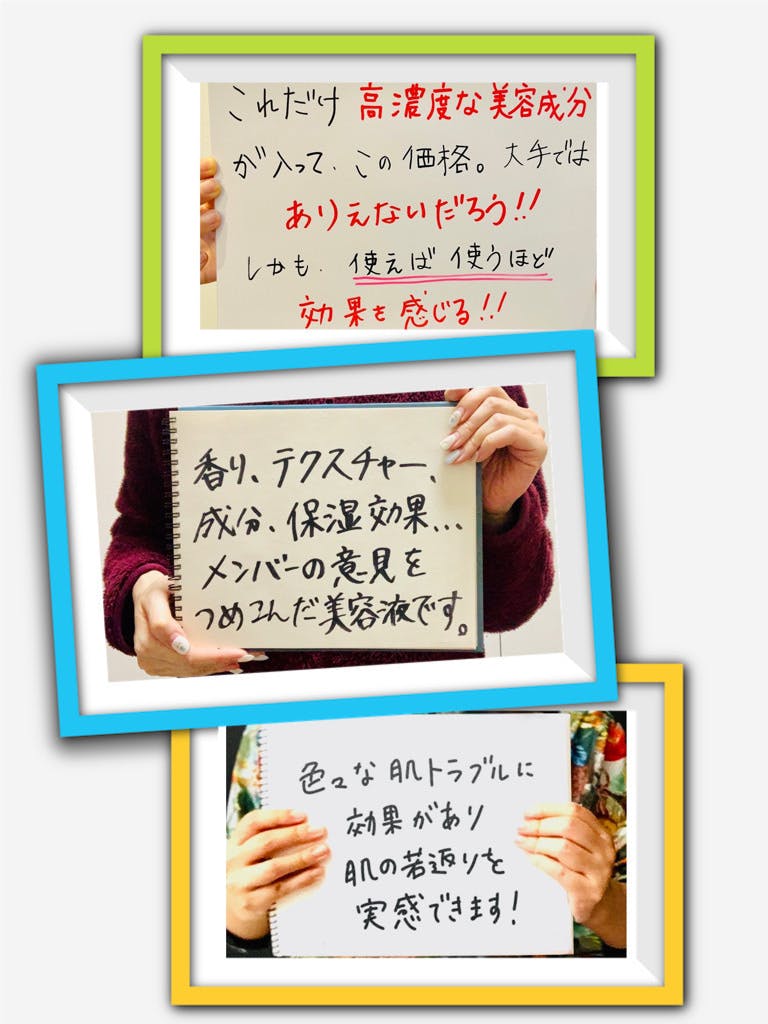 これだけ 高濃度な美容成分
が入って、この価格。大手では
ありえないだろう!!
しかも、使えば使うほど
効果を感じる!!
香り、テクスチャー、
成分、保湿効果...
メンバーの意見を
つめこんだ美容液です。
色々な肌トラブルに
効果があり
肌の若返りを
実感できます!